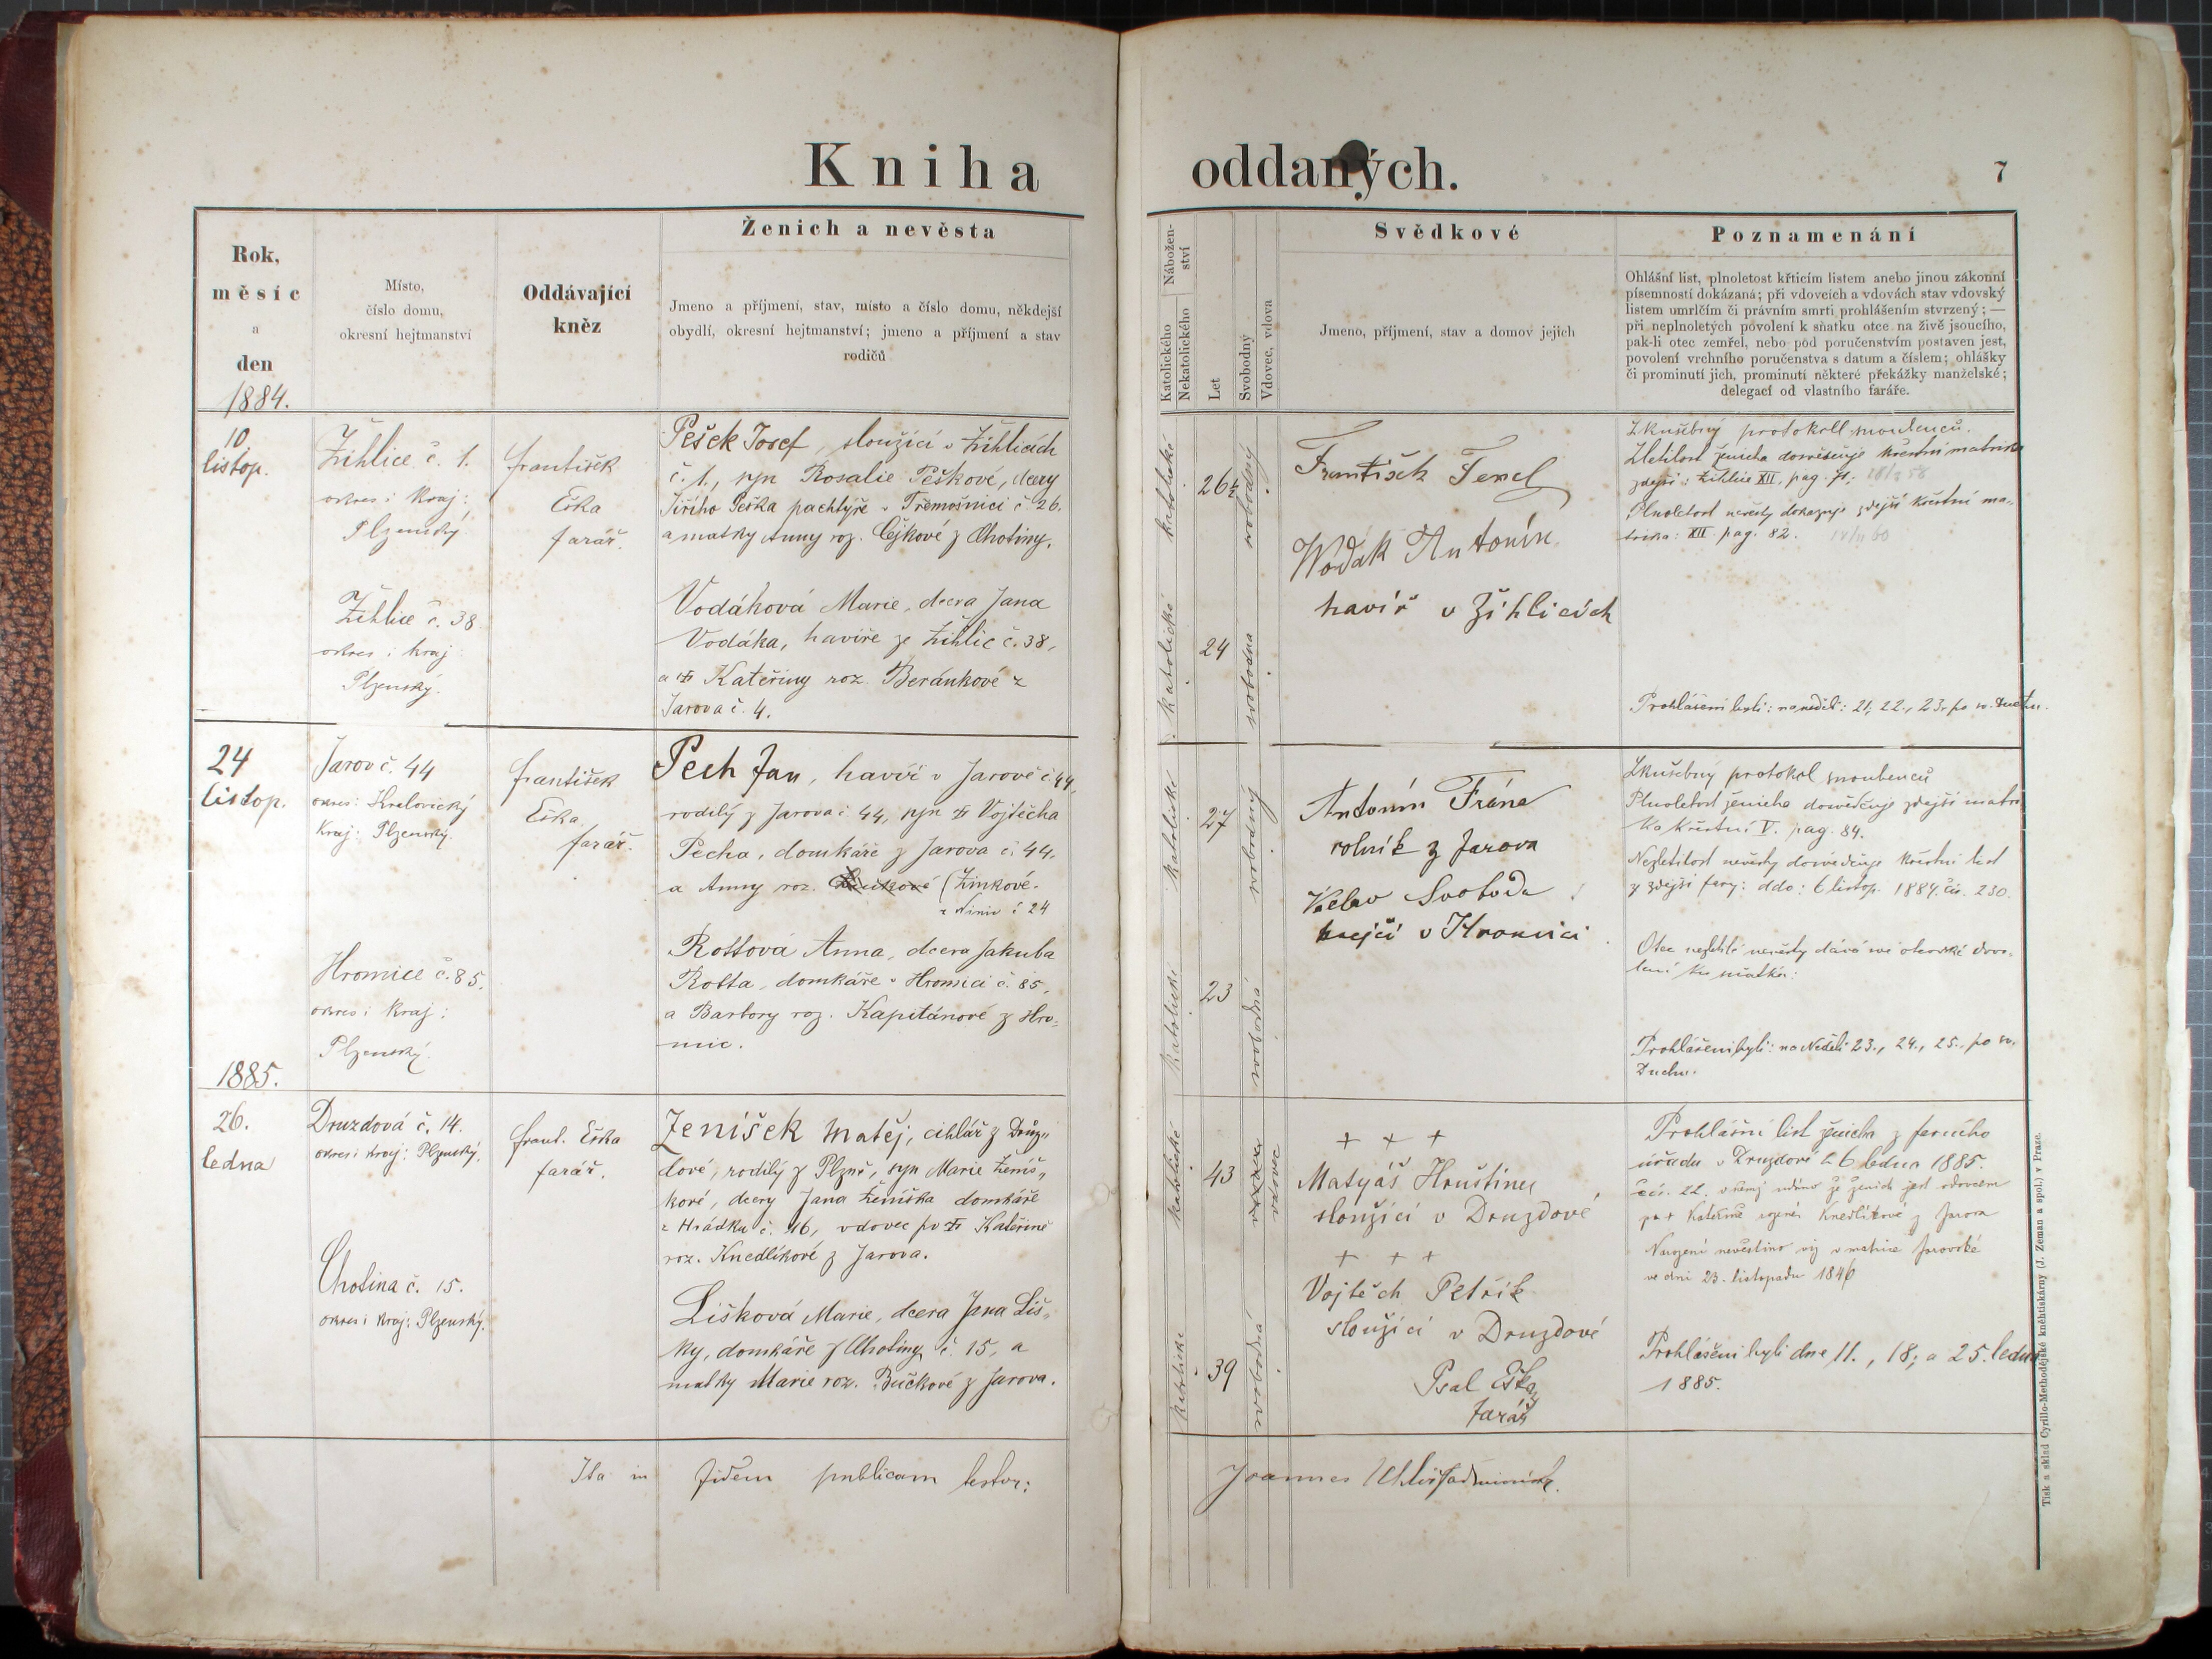 Kniha oddaných.
7
Rok,
měsíc
a
den
1884.
Místo,
číslo domu,
okresní hejtmanství
Oddávající
kněz
Ženich a nevěsta
Jmeno a příjmení, stav, místo a číslo domu, někdejší
obydlí, okresní hejtmanství; jmeno a příjmení a stav
rodičů
Nábožen-
ství
Katolického
Nekatolického
Let
Svobodný
Vdovec, vdova
Svědkové
Jmeno, příjmení, stav a domov jejich
Poznamenání
Ohlášní list, plnoletost křticím listem anebo jinou zákonní
písemností dokázaná; při vdovcích a vdovách stav vdovský
listem umrlčím či právním smrti prohlášením stvrzený; —
při neplnoletých povolení k sňatku otce na živě jsoucího,
pak-li otec zemřel, nebo pod poručenstvím postaven jest,
povolení vrchního poručenstva s datum a číslem; ohlášky
či prominutí jich, prominutí některé překážky manželské;
delegací od vlastního faráře.
10
listop.
Žihlice č. 1.
okres i kraj:
Plzenský
František
Eška
farář.
Pešek Josef, sloužící v Žihlicích
č. 1., syn Rosalie Peškové, dcery
Jiřího Peška pachtýře v Třemošnici č. 26.
a matky Anny roz. Cejkové z Chotiny.
katolické
26½
svobodný
František Tencl
Wodák Antonín
havíř v Žihlicích
Zkušebný protokoll snoubenců.
Zletilost ženicha dosvědčuje křestní matrika
zdejší: Žihlice XII. pag. 71;
Plnoletost nevěsty dokazuje zdejší křestní ma-
trika: XII. pag. 82.
Žihlice č. 38
okres i kraj
Plzenský.
Vodáková Marie, dcera Jana
Vodáka, havíře ze Žihlic č. 38,
a † Kateřiny roz. Beránkové z
Jarova č. 4.
katolické
24
svobodna
Prohlášeni byli: na neděli: 21, 22., 23. po sv. Duchu.
24
listop.
Jarov č. 44
okres: Kralovický
kraj: Plzenský.
František
Eška
farář.
Pech Jan, havíř v Jarově č. 44,
rodilý z Jarova č. 44, syn † Vojtěcha
Pecha, domkáře z Jarova č. 44.
a Anny roz. (Žinkové.
č 24
katolické
27
svobodný
Antonín Frána
rolník z Jarova
Václav Svoboda
krejčí v Hromnici
Zkušebný protokol snoubenců
Plnoletost ženicha dosvědčuje zdejší matri
ka křestní V. pag. 84.
Nezletilost nevěsty dosvědčuje křestní list
z zdejší fary: ddo: 6 listop. 1884. čís. 230.
Hromice č. 85.
okres i kraj:
Plzenský.
Rottová Anna, dcera Jakuba
Rotta, domkáře v Hromici č. 85,
a Barbory roz. Kapitánové z Hro-
mic.
katolické
23
svobodná
Otec nezletilé nevěsty dává své otcovské dovo-
lení ku sňatku:
Prohlášeni byli: na Neděli 23., 24., 25. po sv.
Duchu.
1885.
26.
ledna
Druzdová č. 14.
okres i kraj: Plzenský.
Frant. Eška
farář.
Ženíšek Matěj, cihlář z Druz-
dové, rodilý z Plzně, syn Marie Ženíš-
kové, dcery Jana Ženíška domkáře
z Hrádku č. 16, vdovec po † Kateřině
roz. Knedlíkové z Jarova.
katolické
43
vdovec
+ + +
Matyáš Hruštinec
sloužící v Druzdové
+ + +
Vojtěch Petřík
sloužící v Druzdové
Psal Eška
farář
Prohlášní list ženicha z farního
úřadu v Druzdové 26 ledna 1885.
čís. 22. v němž udáno že ženich jest vdovcem
po † Kateřině rozené Knedlíkové z Jarova
Narození nevěstino viz v matrice Jarovské
ve dni 23. listopadu 1846
Chotina č. 15.
okres i kraj: Plzenský.
Lišková Marie, dcera Jana Liš-
ky, domkáře z Chotiny č. 15, a
matky Marie roz. Bučkové z Jarova.
katolické
39
svobodná
Prohlášeni byli dne 11., 18; a 25. ledna
1885.
Ita in fidem publicam testor:
Joannes
Tisk a sklad Cyrillo-Methodějské knihtiskárny (J. Zeman a spol.) v Praze.